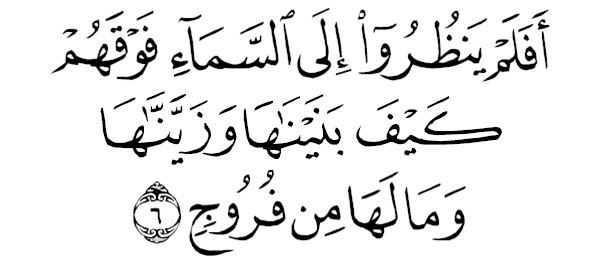 أَفَلَمْ يَنظُرُوٓا۟ إِلَى ٱلسَّمَآءِ فَوْقَهُمْ
كَيْفَ بَنَيْنَٰهَا وَزَيَّنَّٰهَا
وَمَا لَهَا مِن فُرُوجٍ ٦